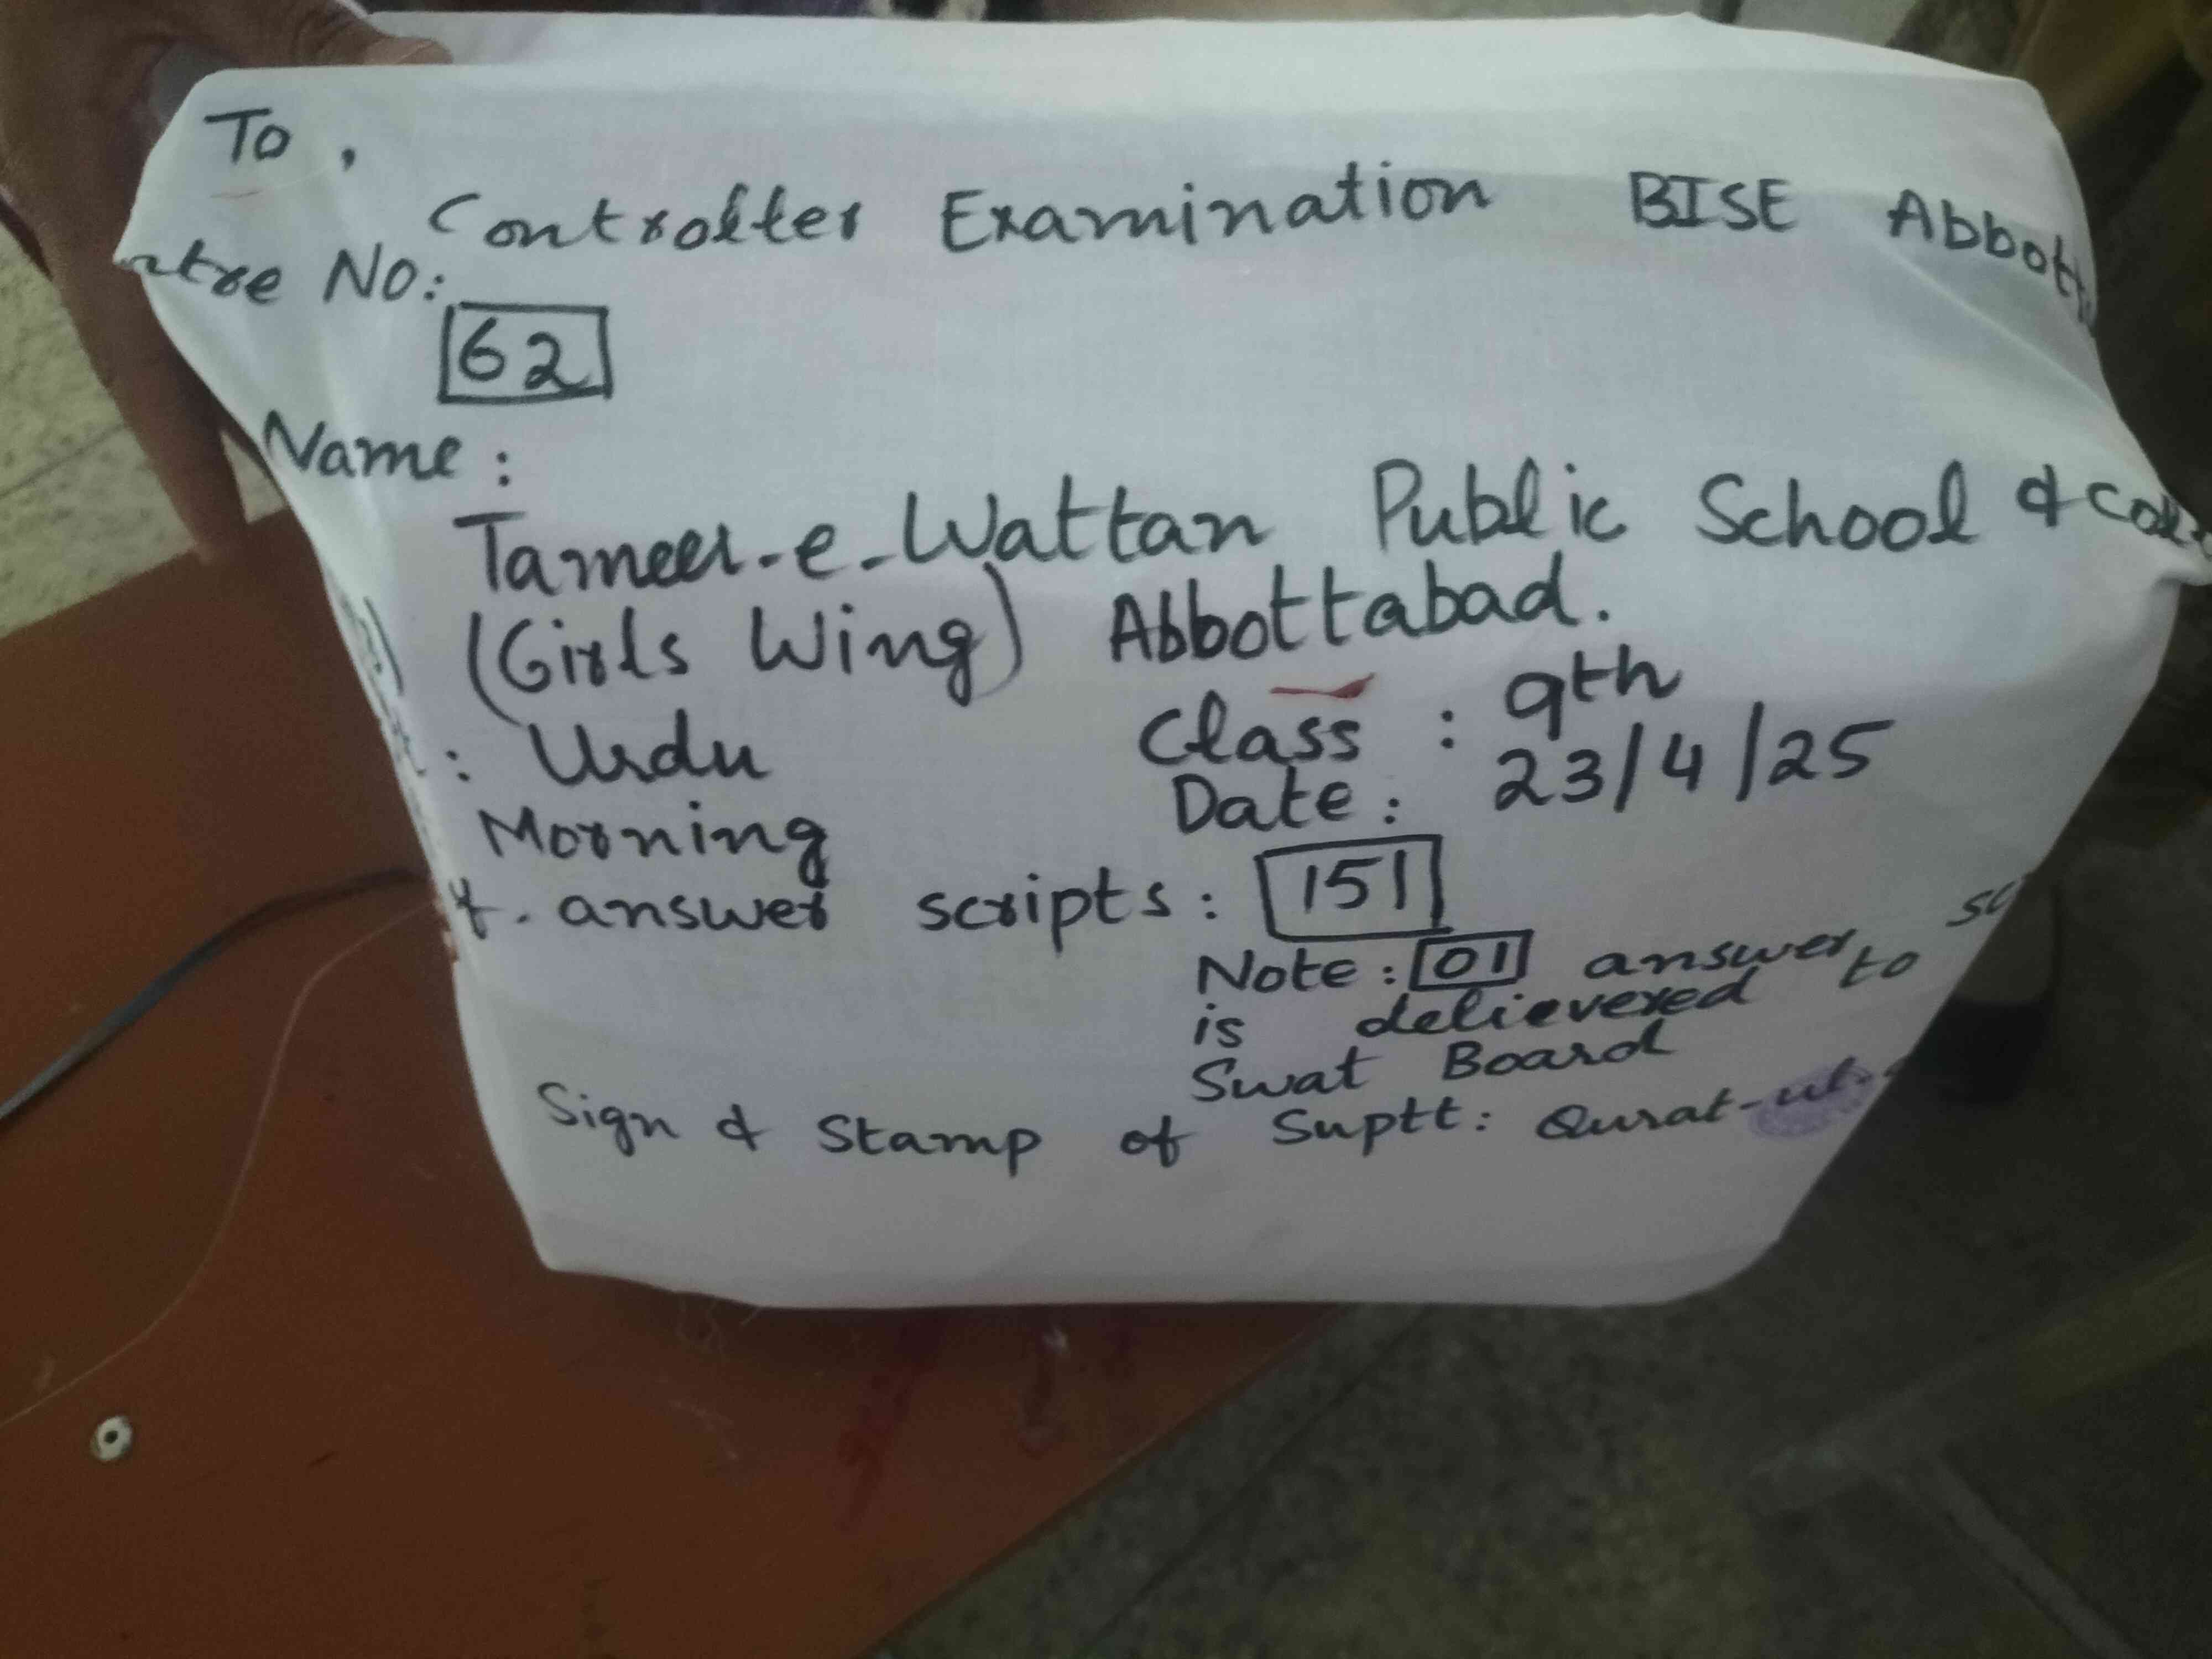 To,
Controller Examination BISE Abbott
ntre No:
62
Name:
Tameer-e-Wattan Public School &
(Girls Wing) Abbottabad.
: Urdu Class : 9th
Morning Date: 23/4/25
f. answer scripts: 151
Note: 01 answer
is delievered to
Swat Board
Sign & Stamp of Suptt: Qurat-ul-